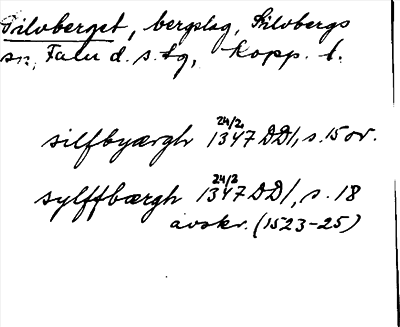 Silvberget, bergslag, Silvbergs
sn, Falu d. s. tg, Kopp. l.
silfbyærgh 24/2 1347 DD1, s. 15 or.
sylffbærgh 24/2 1347 DD1, s. 18
avskr. (1523-25)